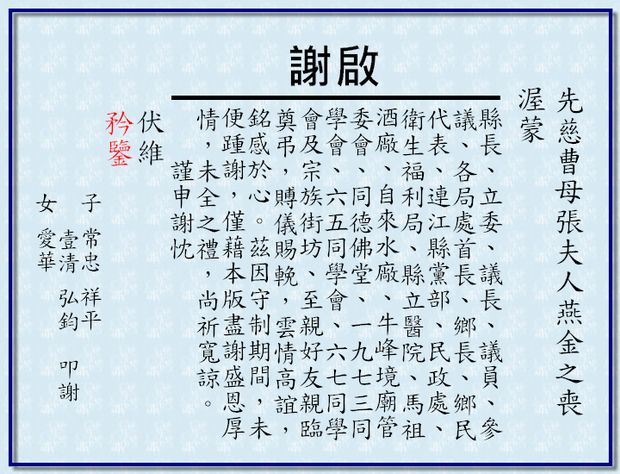 謝啟
先慈曹母張夫人燕金之喪
渥蒙
縣長、立委、議長、議員、參
議、各局處首長、鄉長、鄉民
代表、連江縣黨部、民政處、
衛生福利局、縣立醫院、馬祖
酒廠、自來水廠、牛峰境廟管
委會、同德佛堂、一九七三同
學會、六五同學會、六七同學
會及宗族街坊、至親好友親臨
奠弔，賻儀賜輓，雲情高誼，
銘感於心。茲因守制期間，未
便踵謝，僅藉本版盡謝盛恩厚
情，未全之禮，尚祈寬諒。
謹申謝忱
伏維
矜鑒
子 常忠 祥平
壹清 弘鈞 叩謝
女 愛華